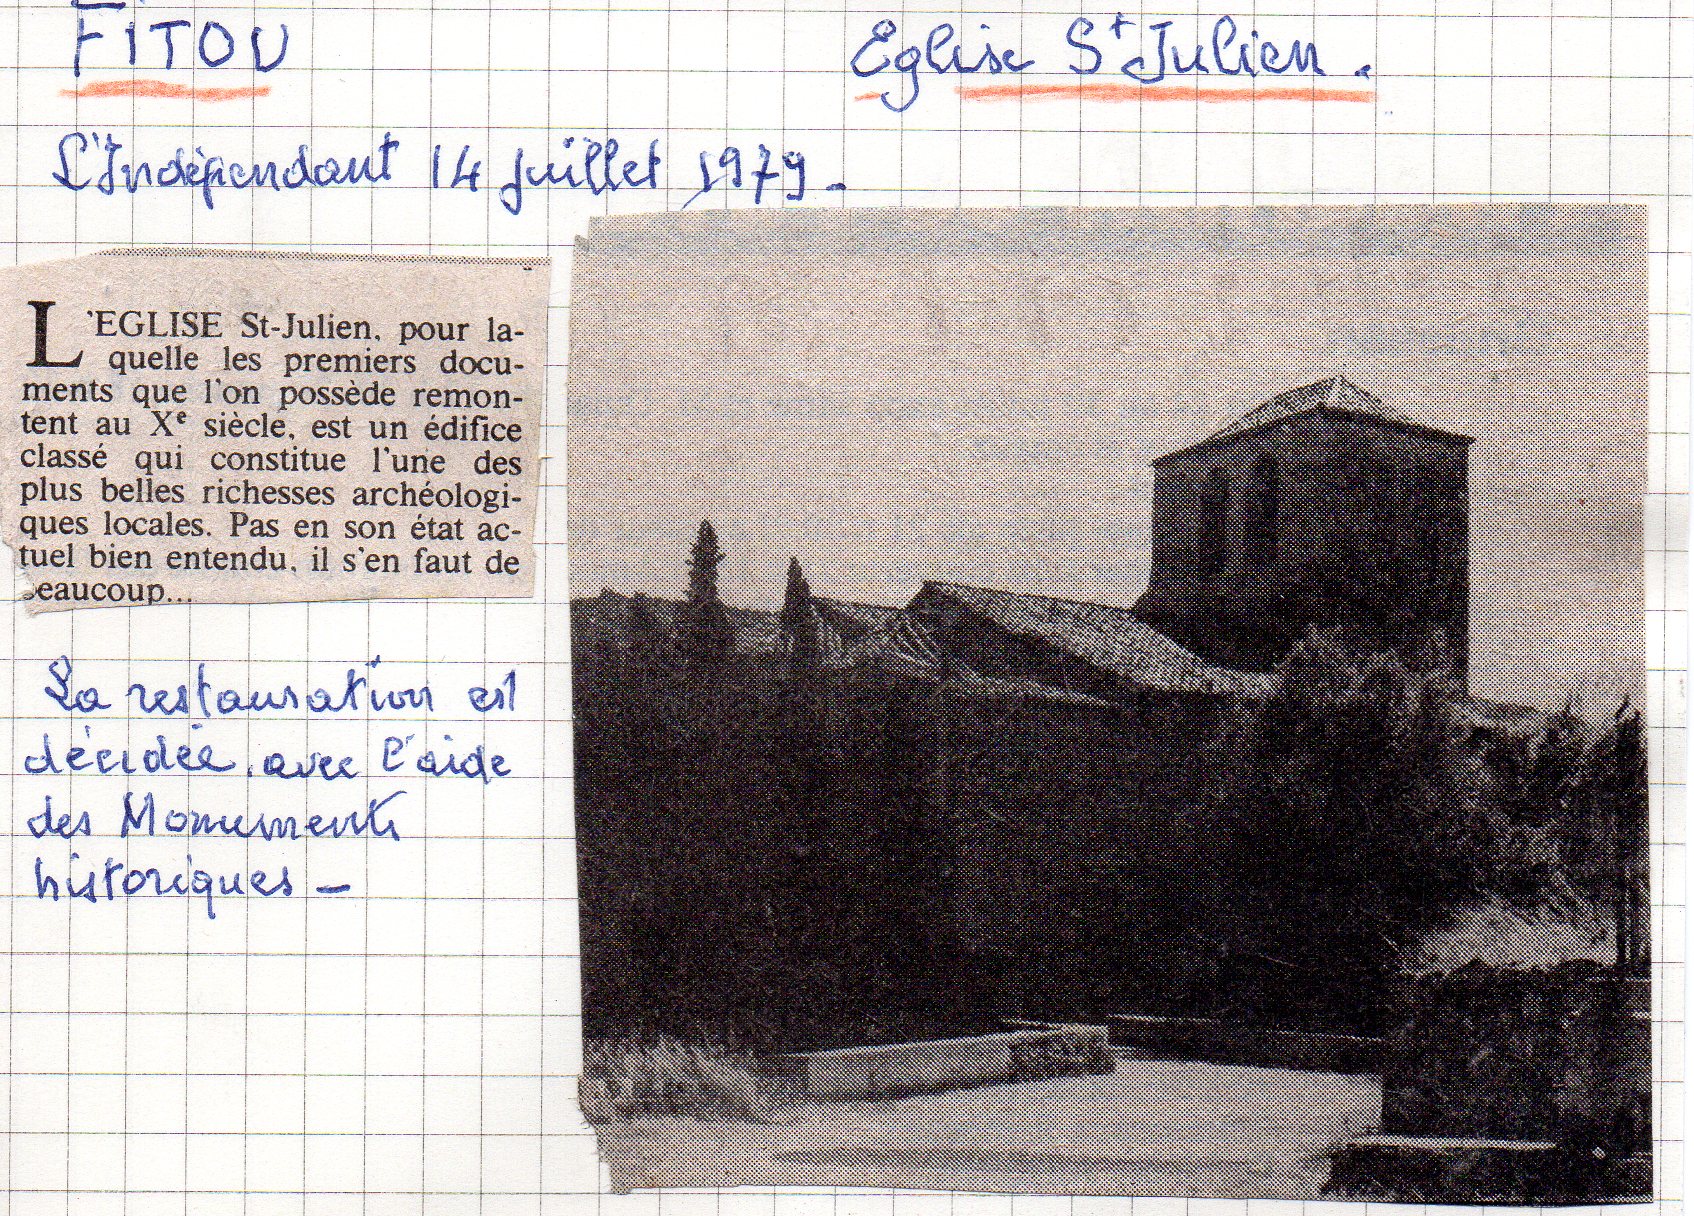 FITOU
Eglise St Julien.
L'Indépendant 14 juillet 1979 -
L'EGLISE St-Julien, pour la-
quelle les premiers docu-
ments que l'on possède remon-
tent au Xe siècle, est un édifice
classé qui constitue l'une des
plus belles richesses archéologi-
ques locales. Pas en son état ac-
tuel bien entendu, il s'en faut de
beaucoup...
La restauration est
décidée avec l'aide
des Monuments
historiques -